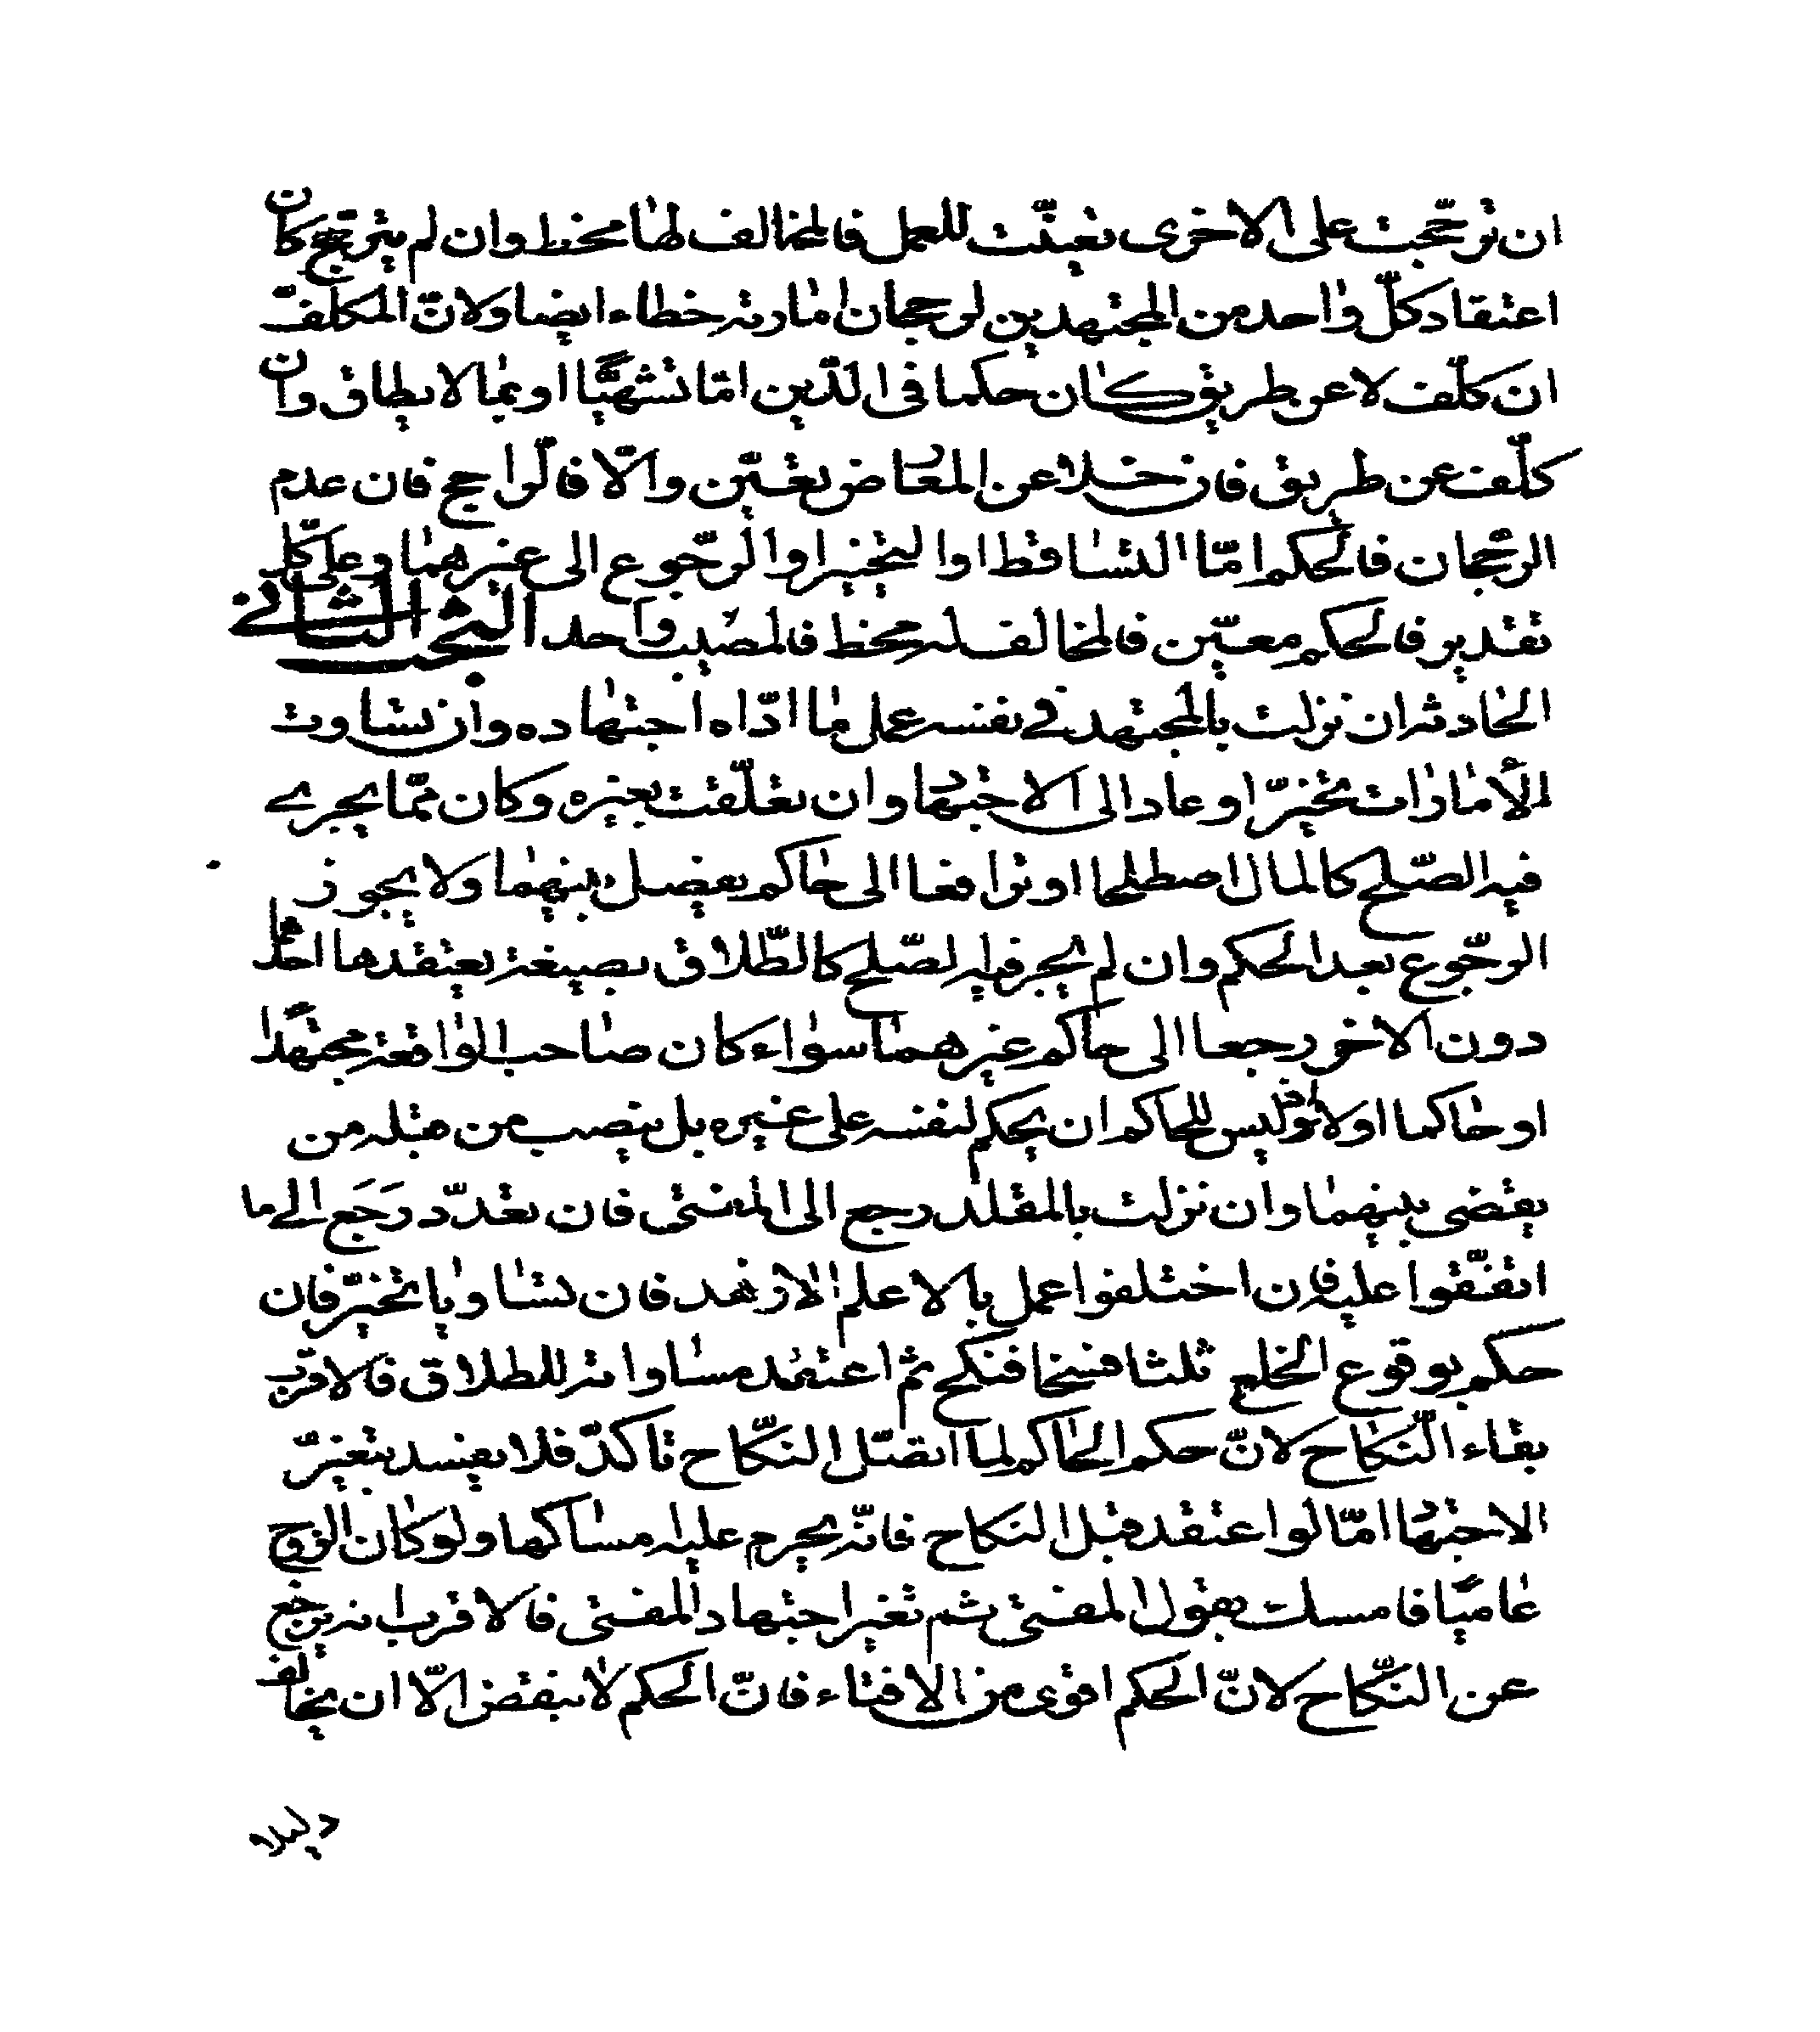 ان ترجّحت على الاخرى تعيّنت للعمل فالمخالف لها مخط وان لم يترجّح كان
اعتقاد كلّ واحد من المجتهدين لرجحان امارته خطاء ايضا ولانّ المكلّف
ان كلّف لا عن طريق كان حكما فى الدّين امّا تشهّيًا او بما لا يطاق وان
كلّف عن طريق فان خلا عن المعارض تعيّن والّا فالراجح فان عدم
الرجحان فالحكم امّا التساقط او التخيير او الرّجوع الى غيرهما وعلى كلّ
تقدير فالحكم معيّن فالمخالف له مخط فالمصيب واحد البحث الثاني
الحادثه ان نزلت بالمجتهد في نفسه عمل ما ادّاه اجتهاده وان تساوت
الأمارات تخيّر او عاد الى الاجتهاد وان تعلّقت بغيره وكان ممّا يجرى
فيه الصّلح كالمال اصطلحا او ترافعا الى حاكم يفصل بينهما ولا يجوز
الرّجوع بعد الحكم وان لم يجر فيه الصّلح كالطّلاق بصيغة يعتقدها احدهما
دون الاخر رجعا الى حاكم غيرهما سواء كان صاحب الواقعة مجتهدًا
او حاكما اولا وليس للحاكم ان يحكم لنفسه على غيره بل ينصب من قبله من
يقضى بينهما وان نزلت بالمقلد رجع الى المفتى فان تعدّد رَجَع الى ما
اتفّقوا عليه فان اختلفوا عمل بالاعلم الازهد فان تساويا تخيّر فان
حكم بوقوع الخلع ثلثا فسخا فنكح ثم اعتقد مساواته للطلاق فالاقرب
بقاء النّكاح لانّ حكم الحاكم لما اتصّل النكّاح تاكدّ فلا يفسد بتغيرّ
الاجتهاد امّا لو اعتقد قبل النكاح فانّه يحرم عليه امساكها ولو كان الزوج
عاميّا فامسك بقول المفتى ثم تغير اجتهاد المفتى فالاقرب انه يرجع
عن النكّاح لانّ الحكم اقوى من الافتاء فانّ الحكم لا ينقض الّا ان يخالف
دليلا